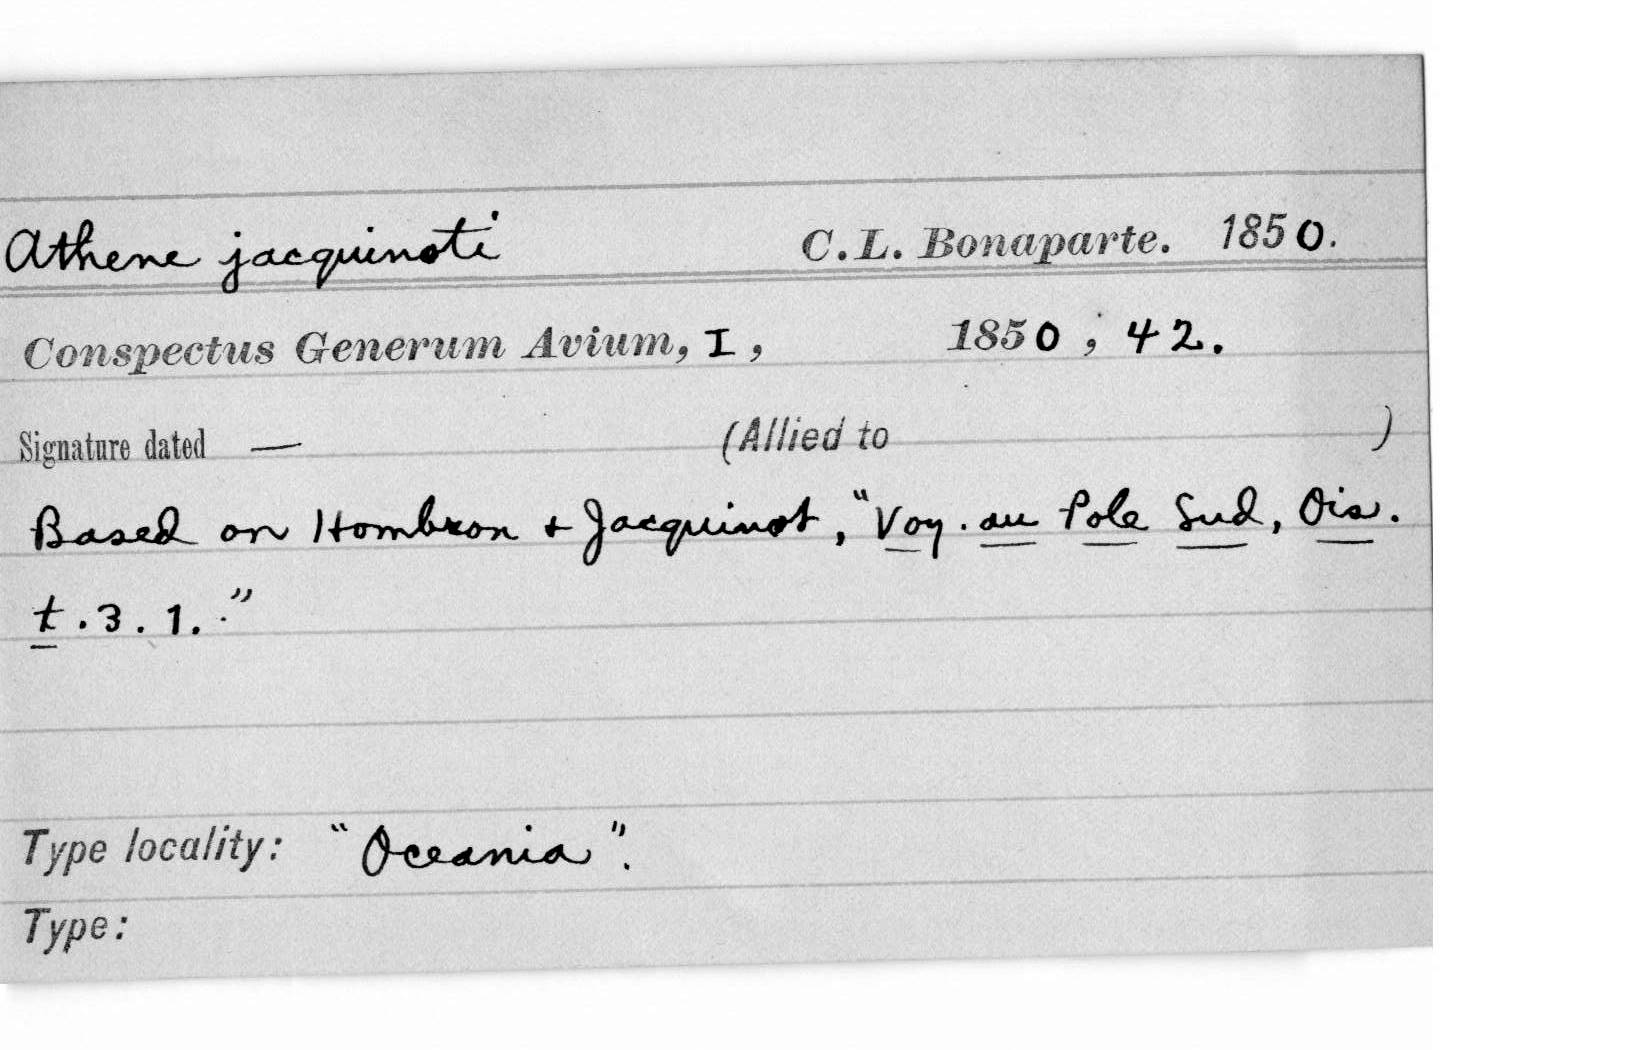 Athene jacquinoti C.L. Bonaparte. 1850.
Conspectus Generum Avium, I, 1850, 42.
Signature dated — (Allied to )
Based on Hombron + Jacquinot, "Voy. au Pole Sud, Ois.
t. 3. 1."
Type locality: "Oceania".
Type: